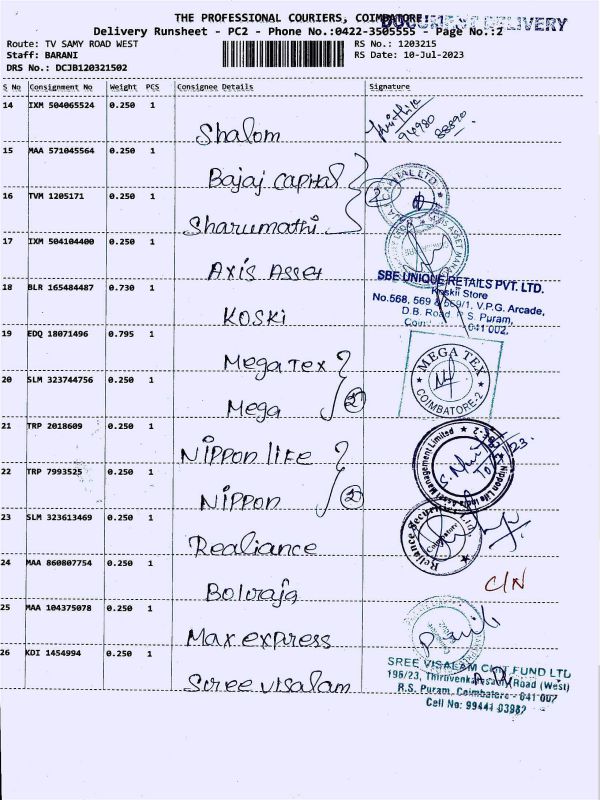 THE PROFESSIONAL COURIERS, COIMBATORE
DOCUMENT DELIVERY
Delivery Runsheet - PC2 - Phone No.:0422-3505555 - Page No.:2
Route: TV SAMY ROAD WEST
RS No.: 1203215
Staff: BARANI
RS Date: 10-Jul-2023
DRS No.: DCJB120321502
S No Consignment No Weight PCS Consignee Details Signature
14 IXM 504065524 0.250 1
Shalom
94980
88890
15 MAA 571045564 0.250 1
Bajaj Capital
CAPITAL LTD
2
16 TVM 1205171 0.250 1
Sharumathi
17 IXM 504104400 0.250 1
Axis Asset
AXIS ASSET
SBE UNIQUE RETAILS PVT. LTD.
Koskii Store
18 BLR 165484487 0.730 1
No.568, 569 & 569/1, V.P.G. Arcade,
D.B. Road, R.S. Puram,
641 002.
KOSKi
19 EDQ 18071496 0.795 1
Mega Tex
MEGA TEX
COIMBATORE-2
20 SLM 323744756 0.250 1
Mega
2
21 TRP 2018609 0.250 1
Nippon Life
Nippon Life India Asset Management Limited
22 TRP 7993525 0.250 1
Nippon
2
23 SLM 323613469 0.250 1
Realiance
Reliance Securities Ltd.
Coimbatore
24 MAA 860807754 0.250 1
Bolraja
C/N
25 MAA 104375078 0.250 1
Max express
26 KDI 1454994 0.250 1
SREE VISALAM CHIT FUND LTD
196/23, Thiruvenkatasamy Road (West)
R.S. Puram, Coimbatore - 641 002
Cell No: 99441 03982
Sree visalam